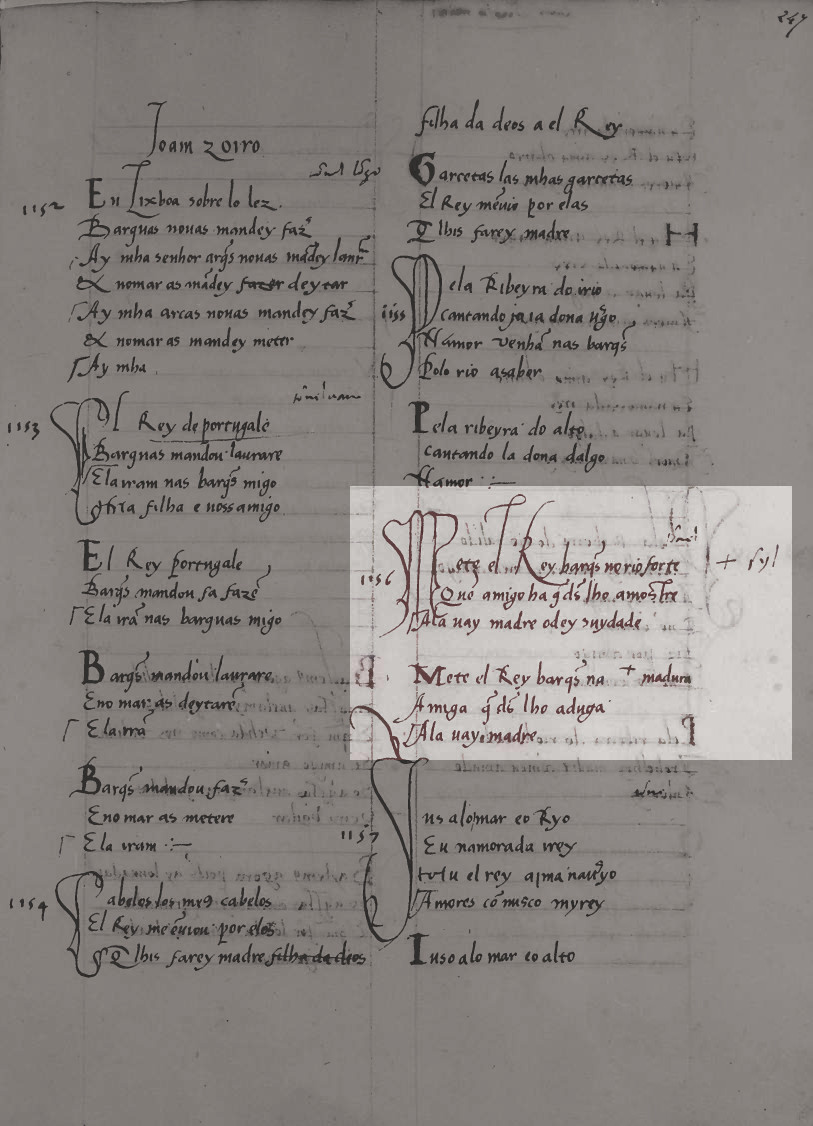 247
Joam zoiro
1152
En Lixboa sobre lo lez.
Barquas nouas mandey faz
Ay mha senhor arq̃s nouas mãdey lanr
& nomar as mãdey fazer deytar
Ay mha arcas nouas mandey faz
& nomar as mandey meter
Ay mha
1153
El Rey de portugale
Barquas mandou laurare
Ela iram nas barq̃s migo
filha e nossamigo
El Rey portugale
Barq̃s mandou fa fazẽ
Ela irã nas barquas migo
Barq̃s mandou laurare
Eno mar as deytarẽ
Ela irã
Barq̃s mandou faz
Eno mar as metere
Ela iram :~
1154
Cabelos los me9 cabelos
El Rey me ẽuiou por elos
Q lhis farey madre filha da deos
filha da deos a el Rey
Garcetas las mhas garcetas
El Rey mẽuio por elas
Q lhis farey madre
1155
Pela Ribeyra do irio
Cantando ia la dona ugo
Namor venhã nas barq̃s
Polo rio a saber
Pela ribeyra do alto
cantando la dona dalgo
Namor :~
1156
Mete el Rey barq̃s no rio forte + syl
Quẽ amigo ha q̃ ds̃ lho amostre
Ala uay madre odey suydade
Mete el Rey barq̃s na + madura
Amiga q̃ ds̃ lho aduga
Ala uay madre
1157
Jus alo mar eo Ryo
Eu namorada irey
el rey arma nauyo
Amores cõ uusco myrey
Iuso alo mar eo alto